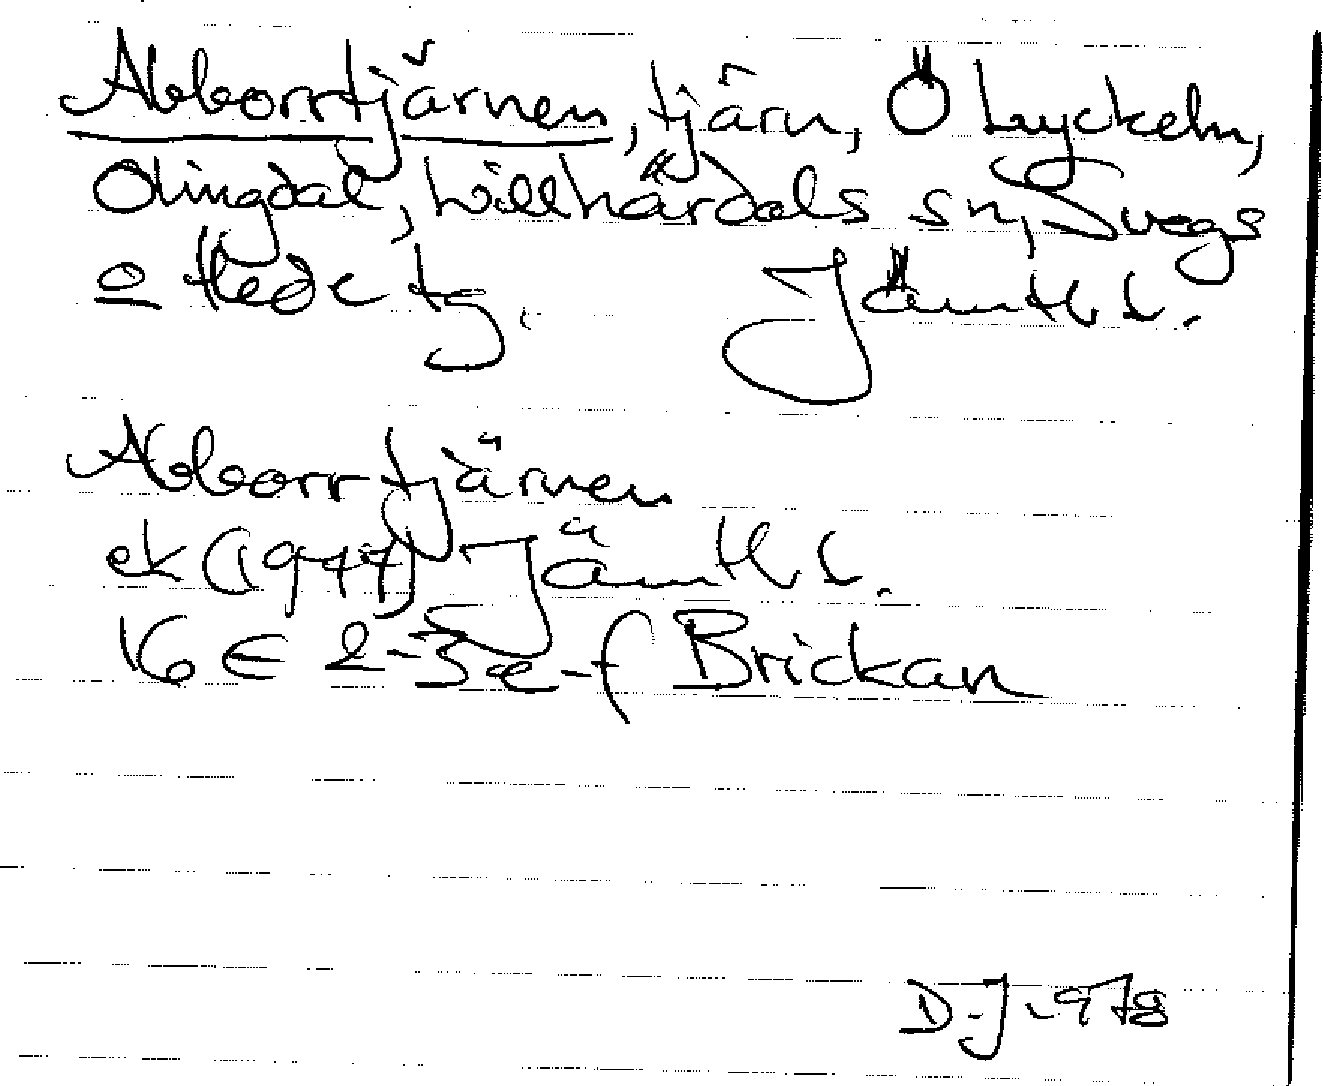 Abborrtjärnen, tjärn, Ö Lyckeln,
Olingdal, Lillhärdals sn, Svegs
o Hede tg. Jämtl l.
Abborrtjärnen
ek (1977) Jämtl l.
16 E 2-3 e-f Brickan
D.J. 1978